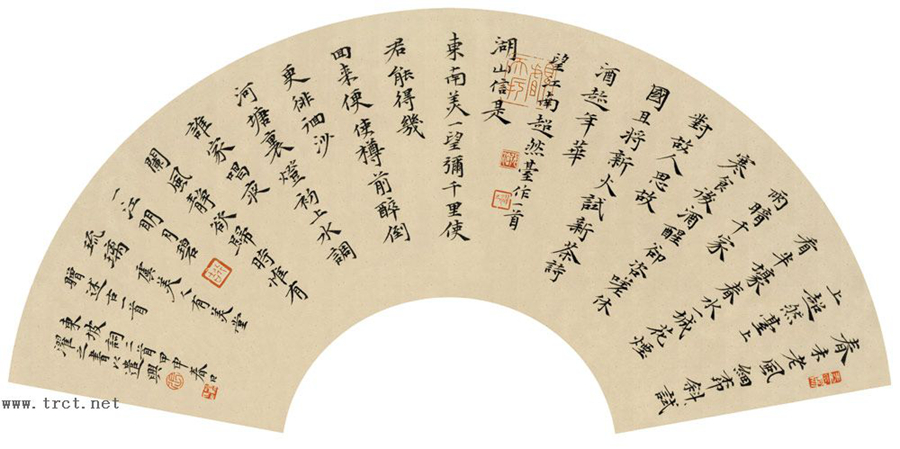 春未老風細柳斜斜試
上超然臺上
看半壕春水一城花煙
雨暗千家
寒食後酒醒卻咨嗟休
對故人思故
國且將新火試新茶詩
酒趁年華
望江南超然臺作一首
湖山信是
東南美一望彌千里使
君能得幾
回來便使樽前醉倒
更徘徊沙
河塘裏燈初上水調
誰家唱夜
闌風靜欲歸時惟有
一江明月碧
琉璃 虞美人有美堂
贈述古一首
東坡詞二首甲申春日
濯之書以遣興
www.trct.net